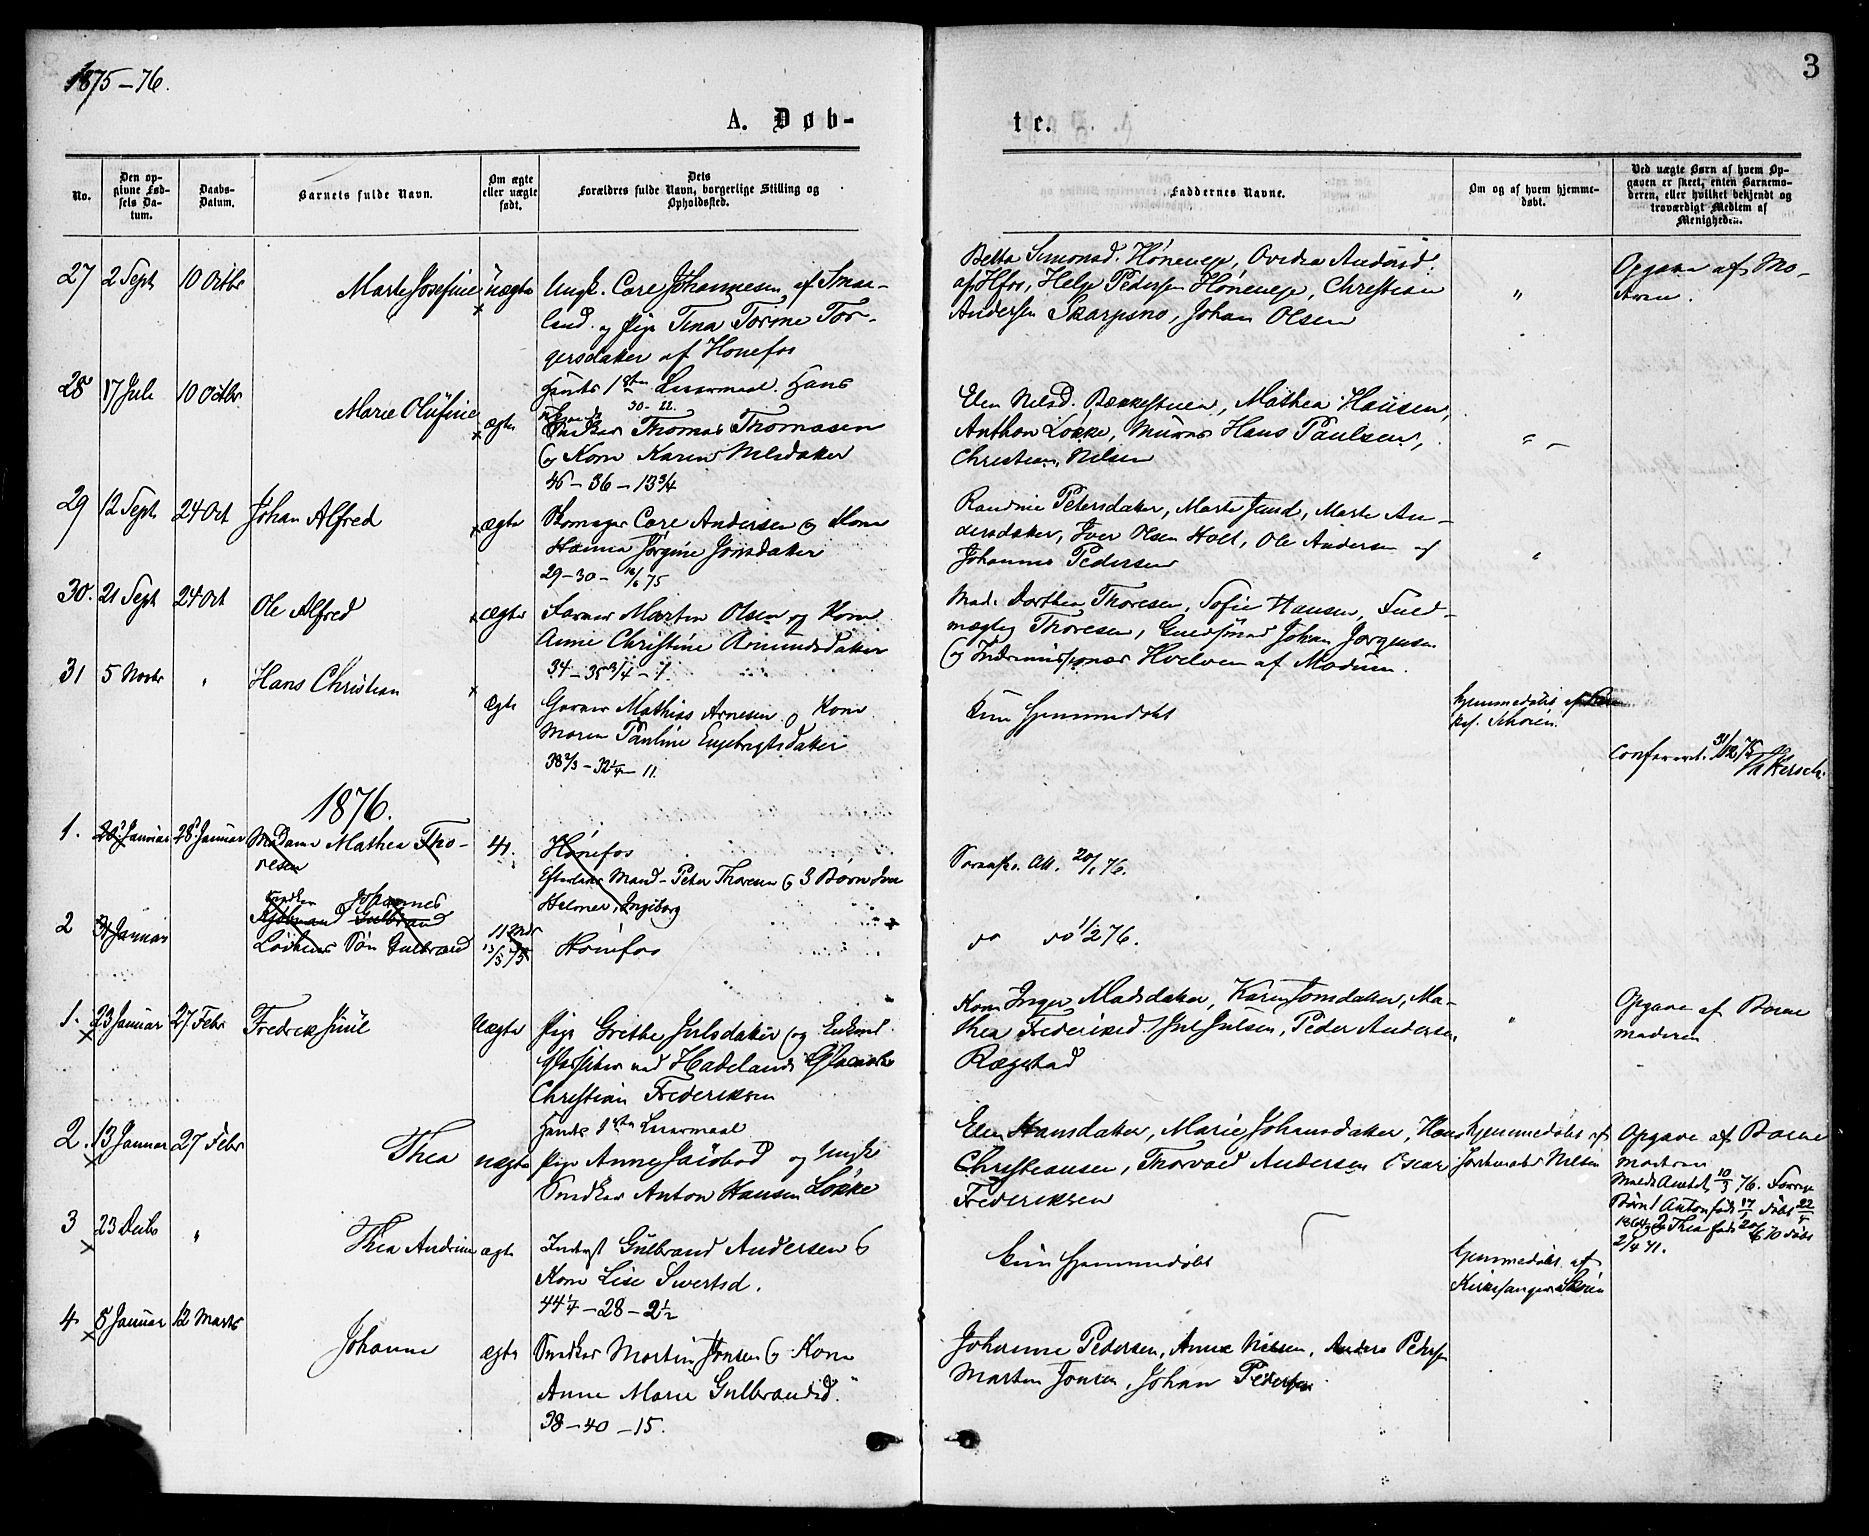 1875-76.
3
A. Døb-
te.
No.
Den op-
givne Fød-
sels Da-
tum.
Daabs-
Datum.
Barnets fulde Navn.
Om ægte
eller uægte
født.
Dets
Forældres fulde Navn, borgerlige Stilling og
Opholdssted.
Faddernes Navne.
Om og af hvem hjemme-
døbt.
Ved uægte Børn af hvem Op-
gaven er skeet, enten Barnemo-
deren, eller hvilket bekjendt og
troværdigt Medlem af
Menigheden.
27 2 Sept 10 Octbr Marte Josefine Uægte
Ungk. Carl Johannesen af Smaa-
land og Pige Tina Torine Tor-
gersdatter af Hønefos
Hands 1ste Leiermaal. Hans
30-22.
Simonsd. Hønenge,
af Hfos, Helge Pedersen Hønenge, Christian
Andersen Skarpsno, Johan Olsen
"
Opgave af Mo-
deren.
28 17 Juli 10 Octbr Marie Olufine ægte
Thomas Thomasen
og Kone Karen Nilsdatter
46-36-13 3/4
Elen Nilsd. Bækkestuen, Mathea Hansen,
Anthon Løkke, Murer Hans Paulsen,
Christian Nilsen
"
29 12 Sept 24 Oct Johan Alfred ægte
Skomager Carl Andersen og Kone
Hanna Jørgine Jonsdatter
29-30- /6 75
Randine Petersdatter, Marte Jund, Marte An-
dersdatter, Iver Olsen Holt, Ole Andersen og
Johannes Pedersen
"
30. 21 Sept 24 Oct Ole Alfred ægte
Farver Martin Olsen og Kone
Anne Christine Amundsdatter
34-35 3/4-1
Mad. Dorthea Thoresen, Sofie Hansen, Fuld-
mægtig Thoresen, Johan Jørgensen
og Hvelven af Modum.
31 5 Novbr " Hans Christian ægte
Garver Mathias Arnesen og Kone
Maren Pauline Engebrigtsdatter
38 2/3-32 1/4-11.
Kun hjemmedøbt
hjemmedøbt af
Schøien.
Confereret. 31/12 75
1876.
1. 20 Januar 28 Januar Madame Mathea Tho-
resen
41.
Hønefos
Efterlader Mand-Peter Thoresen og 3 Børn
Helmer, Ingeborg
Att. 20/1 76.
2 31 Januar
Johannes
Gulbrand
Løkkens Søn Gulbrand
11 Mdr
13/5 75
Hønefos
do do 1/2 76.
1. 23 Januar 27 Febr Fredrek Juul Uægte
Pige Grethe Julsdatter og Enkem.
ved Hadelands Glasværk
Christian Frederiksen
Hands 1ste Leiermaal
Kone Inger Madsdatter, Karen Jonsdatter, Ma-
thea Frederiksd. Juel Julsen, Peder Andersen
Rægstad
"
Opgave af Barne
moderen
2. 13 Januar 27 Febr Thea uægte
Pige Anne Jacobsd og Ungk
Snedker Anton Hansen Løkke
Elen Hansdatter, Marie Johansdatter, Hans
Christiansen, Thorvald Andersen Oscar
Frederiksen
hjemmedøbt af
Jordmoder Nilsen
Opgave af Barne
moderen
10/3 76.
Børn 1 Anton født 17 døbt 22
2 Thea født 20/6 70 døbt
2/4 71.
3 23 Decbr " Thea Andrine ægte
Inderst Gulbrand Andersen og
Kone Lise Sivertsd.
44 1/4-28-2 1/2
Kun hjemmedøbt
hjemmedøbt af
Kirkesanger Skøien
4 5 Januar 12 Marts Johanne ægte
Snedker Martin Jonsen og Kone
Anne Marie Gulbrandsd.
38-40-15.
Johanne Pedersen, Anne Nilsen, Anders Petersen
Marten Jonsen, Johan Pedersen